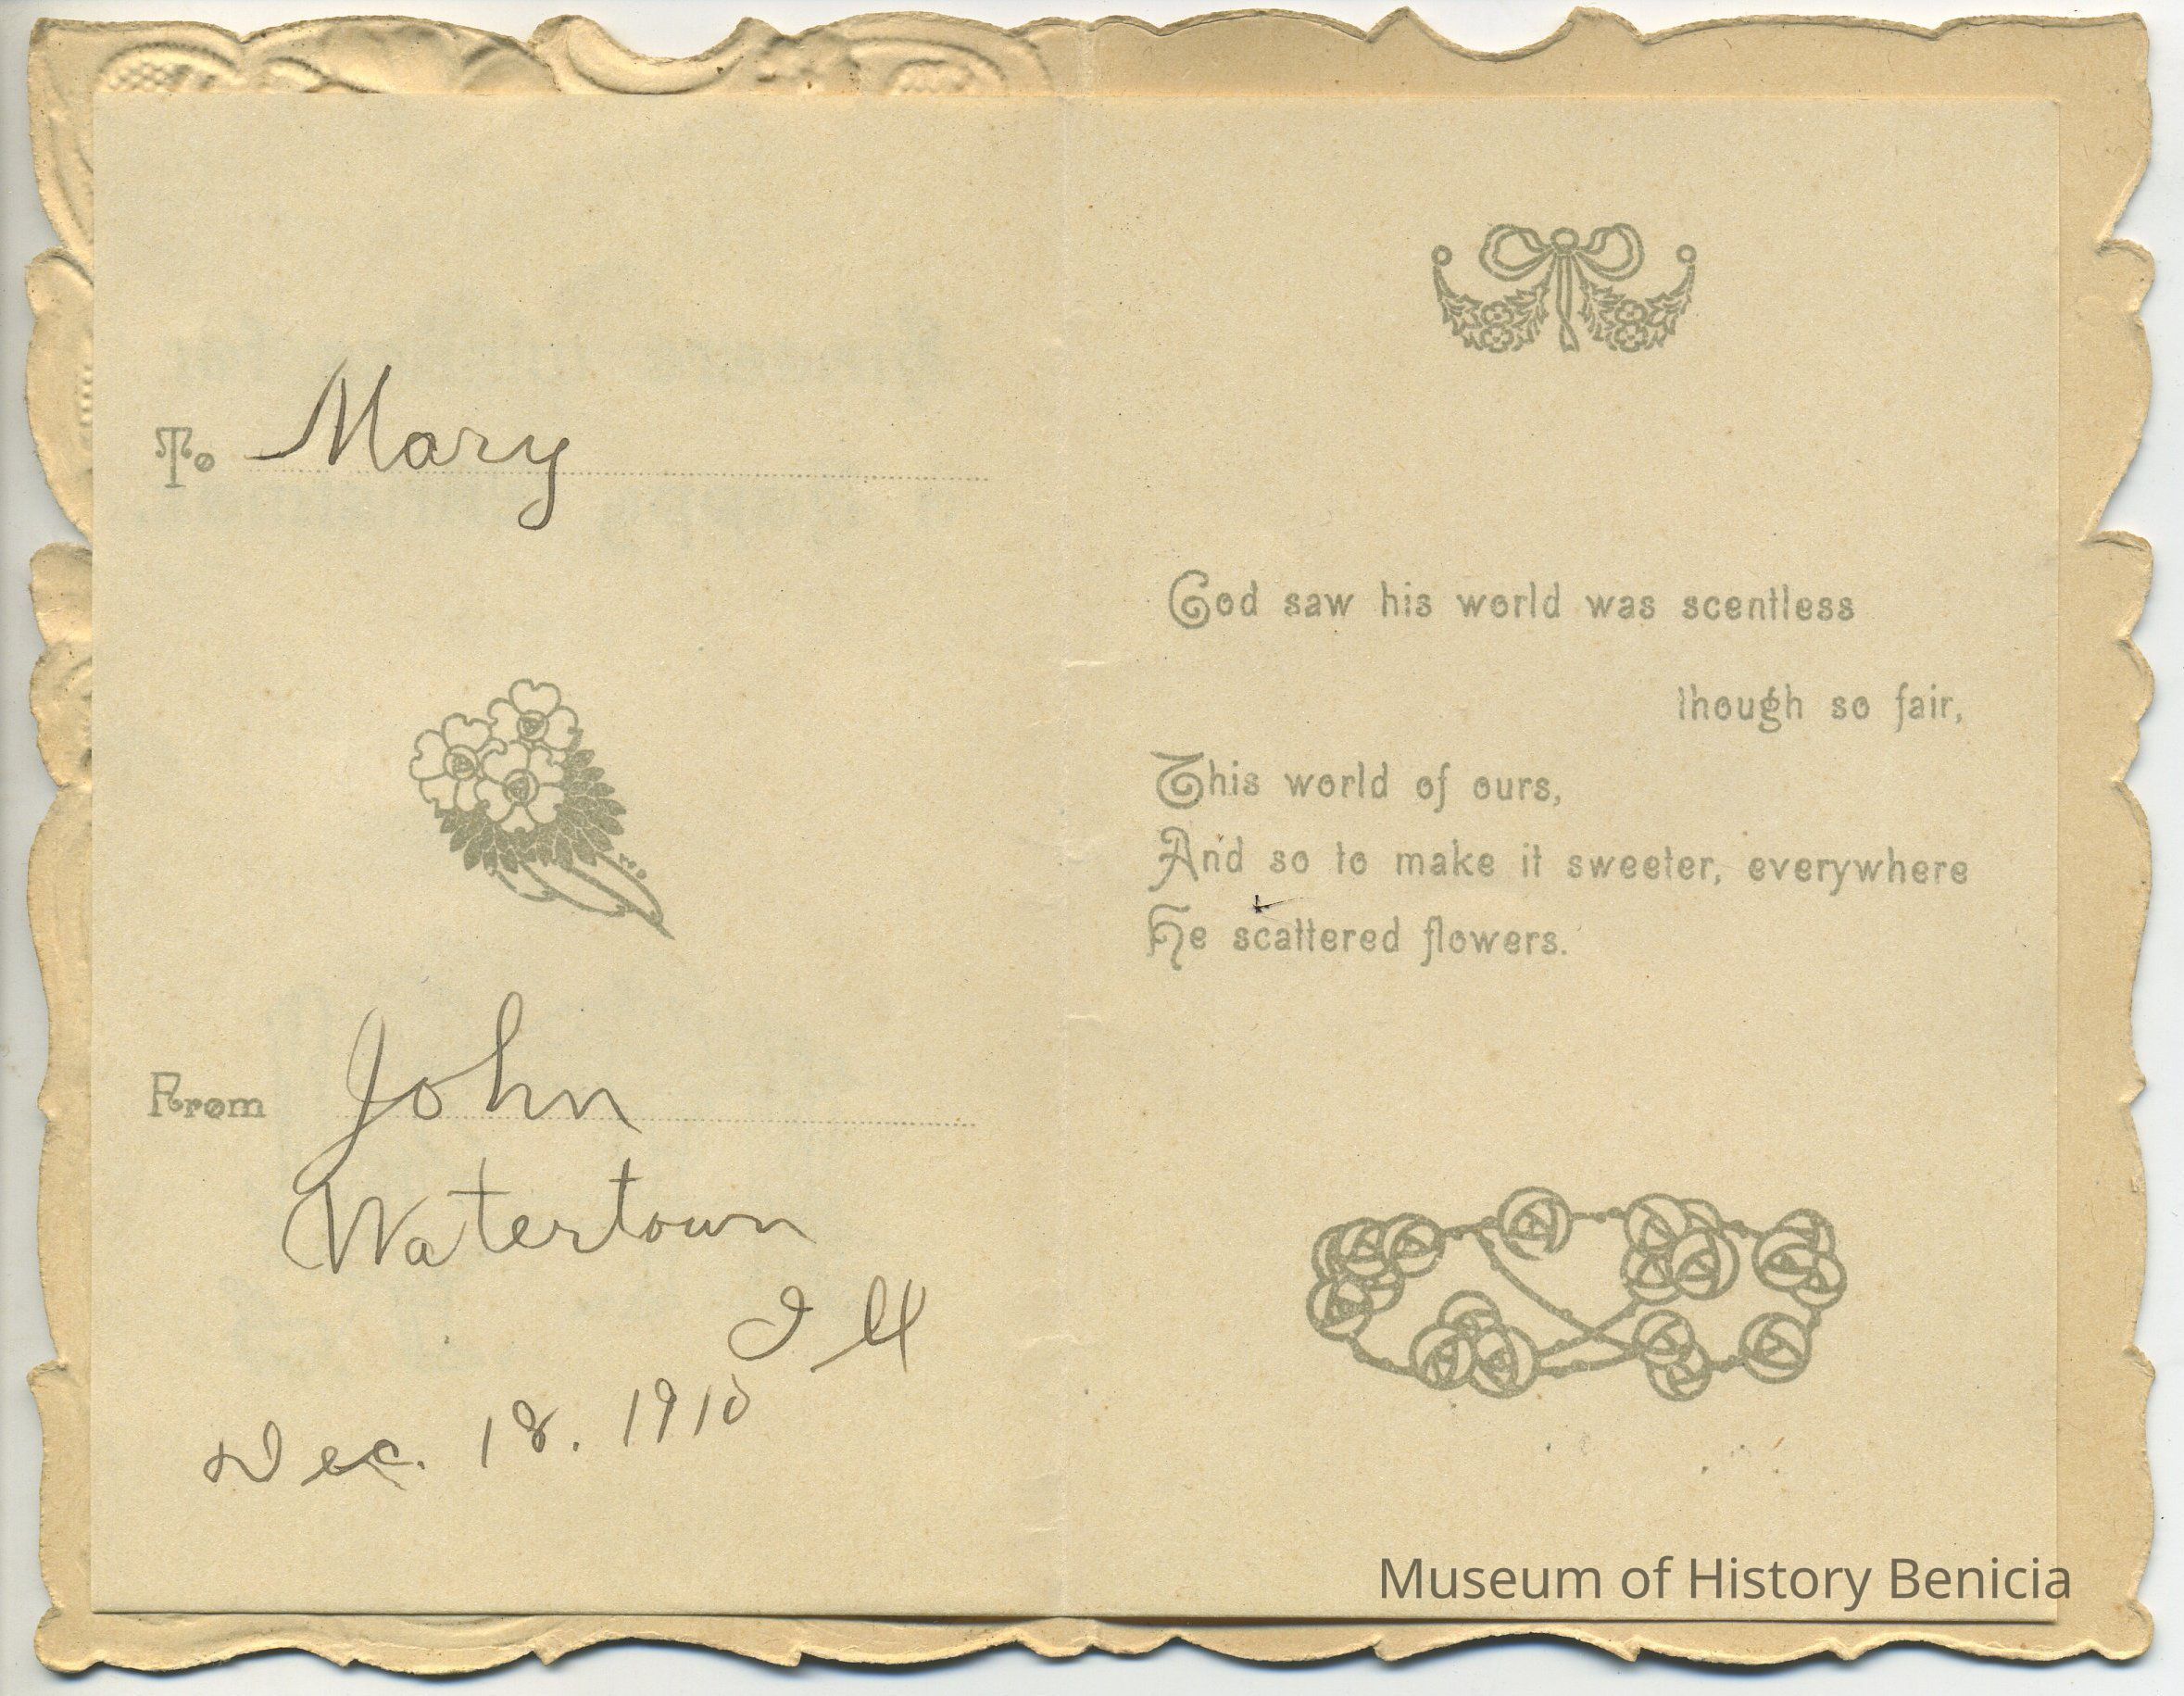 To Mary
From John
Watertown
Ill
Dec. 18. 1910
God saw his world was scentless
though so fair,
This world of ours,
And so to make it sweeter, everywhere
He scattered flowers.
Museum of History Benicia